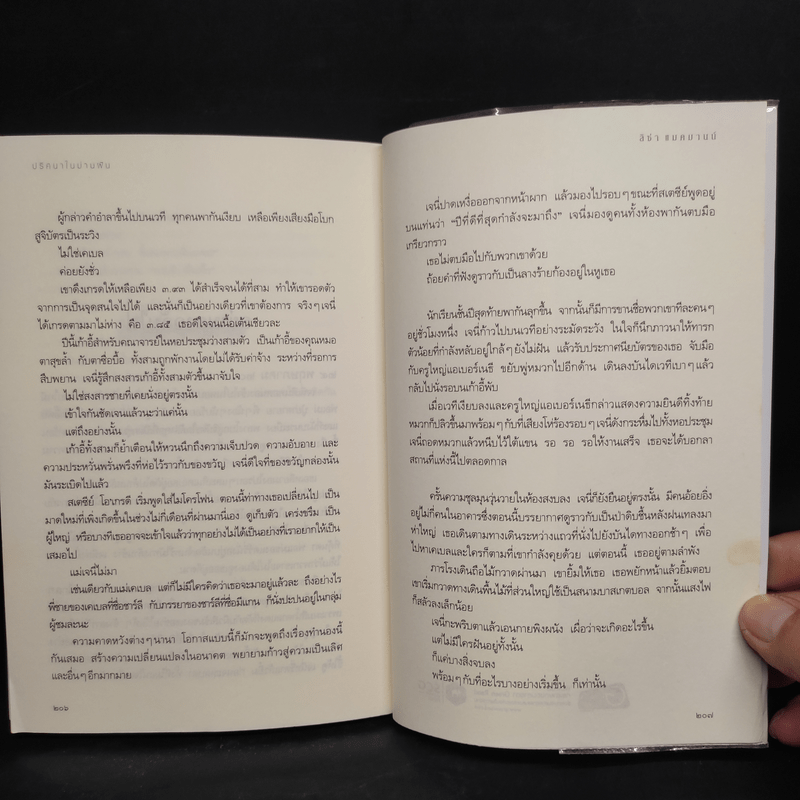 ปริศนาในม่านฝัน
ผู้กล่าวคำอำลาขึ้นไปบนเวที ทุกคนพากันเงียบ เหลือเพียงเสียงมือโบก
สูจิบัตรเป็นระวิง
ไม่ใช่เคเบล
ค่อยยังชั่ว
เขาดึงเกรดให้เหลือเพียง ๓.๙๓ ได้สำเร็จจนได้ที่สาม ทำให้เขารอดตัว
จากการเป็นจุดสนใจไปได้ และนั่นก็เป็นอย่างเดียวที่เขาต้องการ จริงๆ เจนี่
ได้เกรดตามมาไม่ห่าง คือ ๓.๘๕ เธอดีใจจนเนื้อเต้นเชียวละ
ปีนี้เก้าอี้สำหรับคณาจารย์ในหอประชุมว่างสามตัว เป็นเก้าอี้ของคุณหมอ
ตาสุขล้ำ กับตาซื่อบื้อ ทั้งสามถูกพักงานโดยไม่ได้รับค่าจ้าง ระหว่างที่รอการ
สืบพยาน เจนี่รู้สึกสงสารเก้าอี้ทั้งสามตัวขึ้นมาจับใจ
ไม่ใช่สงสารชายที่เคยนั่งอยู่ตรงนั้น
เข้าใจกันชัดเจนแล้วนะว่าแค่นั้น
แต่ถึงอย่างนั้น
เก้าอี้ทั้งสามก็ย้ำเตือนให้หวนนึกถึงความเจ็บปวด ความอับอาย และ
ความประหวั่นพรั่นพรึงที่ห่อไว้ราวกับของขวัญ เจนี่ดีใจที่ของขวัญกล่องนั้น
มันระเบิดไปแล้ว
สเตซีย์ โอเกรดี เริ่มพูดใส่ไมโครโฟน ตอนนี้ท่าทางเธอเปลี่ยนไป เป็น
มาดใหม่ที่เพิ่งเกิดขึ้นในช่วงไม่กี่เดือนที่ผ่านมานี่เอง ดูเก็บตัว เคร่งขรึม เป็น
ผู้ใหญ่ หรือบางทีเธออาจจะเข้าใจแล้วว่าทุกอย่างไม่ได้เป็นอย่างที่เราอยากให้เป็น
เสมอไป
แม่เจนี่ไม่มา
เช่นเดียวกับแม่เคเบล แต่ก็ไม่มีใครคิดว่าเธอจะมาอยู่แล้วละ ถึงอย่างไร
พี่ชายของเคเบลที่ชื่อชาร์ลี กับภรรยาของชาร์ลีที่ชื่อมีแกน ก็นั่งปะปนอยู่ในกลุ่ม
ผู้ชมละนะ
ความคาดหวังต่างๆ นานา โอกาสแบบนี้ก็มักจะพูดถึงเรื่องทำนองนี้
กันเสมอ สร้างความเปลี่ยนแปลงในอนาคต พยายามก้าวสู่ความเป็นเลิศ
และอื่นๆ อีกมากมาย
๒๐๖
ลิซ่า แมคมานน์
เจนี่ปาดเหงื่อออกจากหน้าผาก แล้วมองไปรอบๆ ขณะที่สเตซีย์พูดอยู่
บนแท่นว่า “ปีที่ดีที่สุดกำลังจะมาถึง” เจนี่มองดูคนทั้งห้องพากันตบมือ
เกรียวกราว
เธอไม่ตบมือไปกับพวกเขาด้วย
ถ้อยคำที่ฟังดูราวกับเป็นลางร้ายก้องอยู่ในหูเธอ
นักเรียนชั้นปีสุดท้ายพากันลุกขึ้น จากนั้นก็มีการขานชื่อพวกเขาทีละคนๆ
อยู่ชั่วโมงหนึ่ง เจนี่ก้าวไปบนเวทีอย่างระมัดระวัง ในใจก็นึกภาวนาให้ทารก
ตัวน้อยที่กำลังหลับอยู่ใกล้ๆ ยังไม่ฝัน แล้วรับประกาศนียบัตรของเธอ จับมือ
กับครูใหญ่แอเบอร์เนธี ขยับพู่หมวกไปอีกด้าน เดินลงบันไดเวทีเบาๆ แล้ว
กลับไปนั่งรอบนเก้าอี้พับ
เมื่อเวทีเงียบลงและครูใหญ่แอเบอร์เนธีกล่าวแสดงความยินดีทิ้งท้าย
หมวกก็ปลิวขึ้นมาพร้อมๆ กับที่เสียงไห่ร้องรอบๆ เจนี่ดังกระหึ่มไปทั้งหอประชุม
เจนี่ถอดหมวกแล้วหนีบไว้ใต้แขน รอ รอ รอให้งานเสร็จ เธอจะได้บอกลา
สถานที่แห่งนี้ไปตลอดกาล
ครั้นความชุลมุนวุ่นวายในห้องสงบลง เจนี่ก็ยังยืนอยู่ตรงนั้น มีคนอ้อยอิ่ง
อยู่ไม่กี่คนในอาคารซึ่งตอนนี้บรรยากาศดูราวกับเป็นป่าดิบชื้นหลังฝนเทลงมา
ห่าใหญ่ เธอเดินตามทางเดินระหว่างแถวที่นั่งไปยังบันไดทางออกช้าๆ เพื่อ
ไปหาเคเบลและใครก็ตามที่เขากำลังคุยด้วย แต่ตอนนี้ เธออยู่ตามลำพัง
ภารโรงเดินถือไม้กวาดผ่านมา เขายิ้มให้เธอ เธอพยักหน้าแล้วยิ้มตอบ
เขาเริ่มกวาดทางเดินพื้นไม้ที่ส่วนใหญ่ใช้เป็นสนามบาสเกตบอล จากนั้นแสงไฟ
ก็สลัวลงเล็กน้อย
เจนี่กะพริบตาแล้วเอนกายพิงผนัง เผื่อว่าจะเกิดอะไรขึ้น
แต่ไม่มีใครฝันอยู่ทั้งนั้น
ก็แค่บางสิ่งจบลง
พร้อมๆ กับที่อะไรบางอย่างเริ่มขึ้น ก็เท่านั้น
๒๐๗